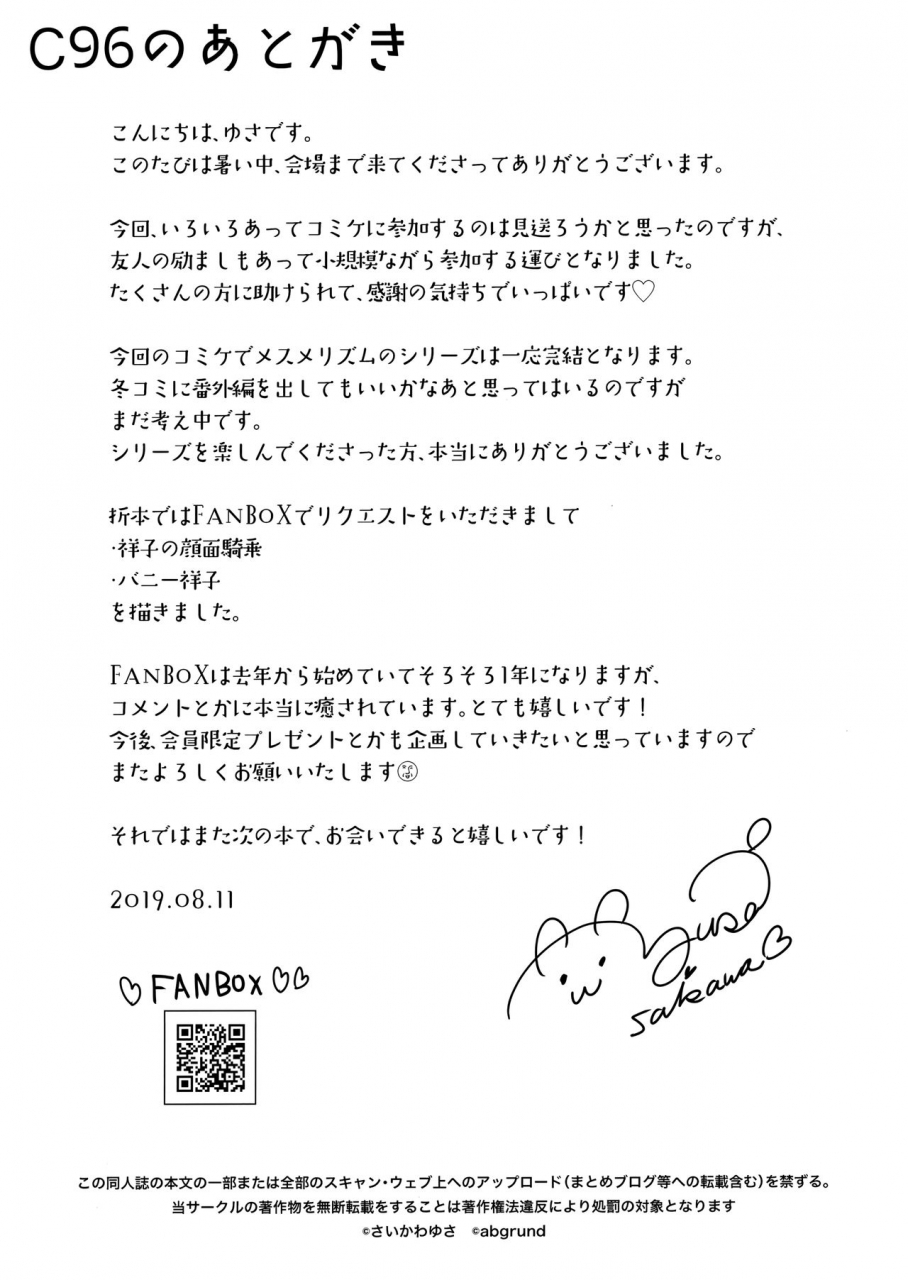 C96のあとがき
こんにちは、ゆさです。
このたびは暑い中、会場まで来てくださってありがとうございます。
今回、いろいろあってコミケに参加するのは見送ろうかと思ったのですが、
友人の励ましもあって小規模ながら参加する運びとなりました。
たくさんの方に助けられて、感謝の気持ちでいっぱいです♡
今回のコミケでメスメリズムのシリーズは一応完結となります。
冬コミに番外編を出してもいいかなあと思ってはいるのですが
まだ考え中です。
シリーズを楽しんでくださった方、本当にありがとうございました。
折本ではFANBOXでリクエストをいただきまして
・祥子の顔面騎乗
・バニー祥子
を描きました。
FANBOXは去年から始めていてそろそろ1年になりますが、
コメントとかに本当に癒されています。とても嬉しいです！
今後、会員限定プレゼントとかも企画していきたいと思っていますので
またよろしくお願いいたします
それではまた次の本で、お会いできると嬉しいです！
2019.08.11
Yusa
saikawa♡
♡FANBOX♡♡
この同人誌の本文の一部または全部のスキャン・ウェブ上へのアップロード（まとめブログ等への転載含む）を禁ずる。
当サークルの著作物を無断転載をすることは著作権法違反により処罰の対象となります
©さいかわゆさ ©abgrund